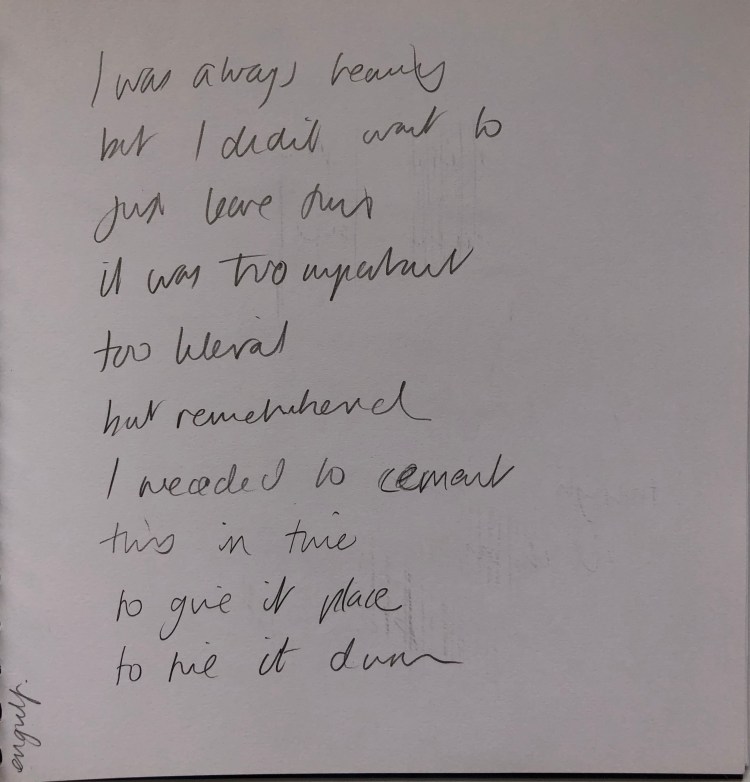 I was always leaving
but I didn't want to
just leave this
it was too important
too literal
but remembered
I needed to cement
this in time
to give it place
to tie it down